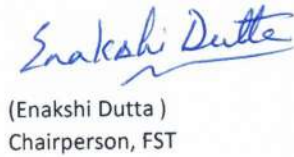 Enakshi Dutta
(Enakshi Dutta )
Chairperson, FST